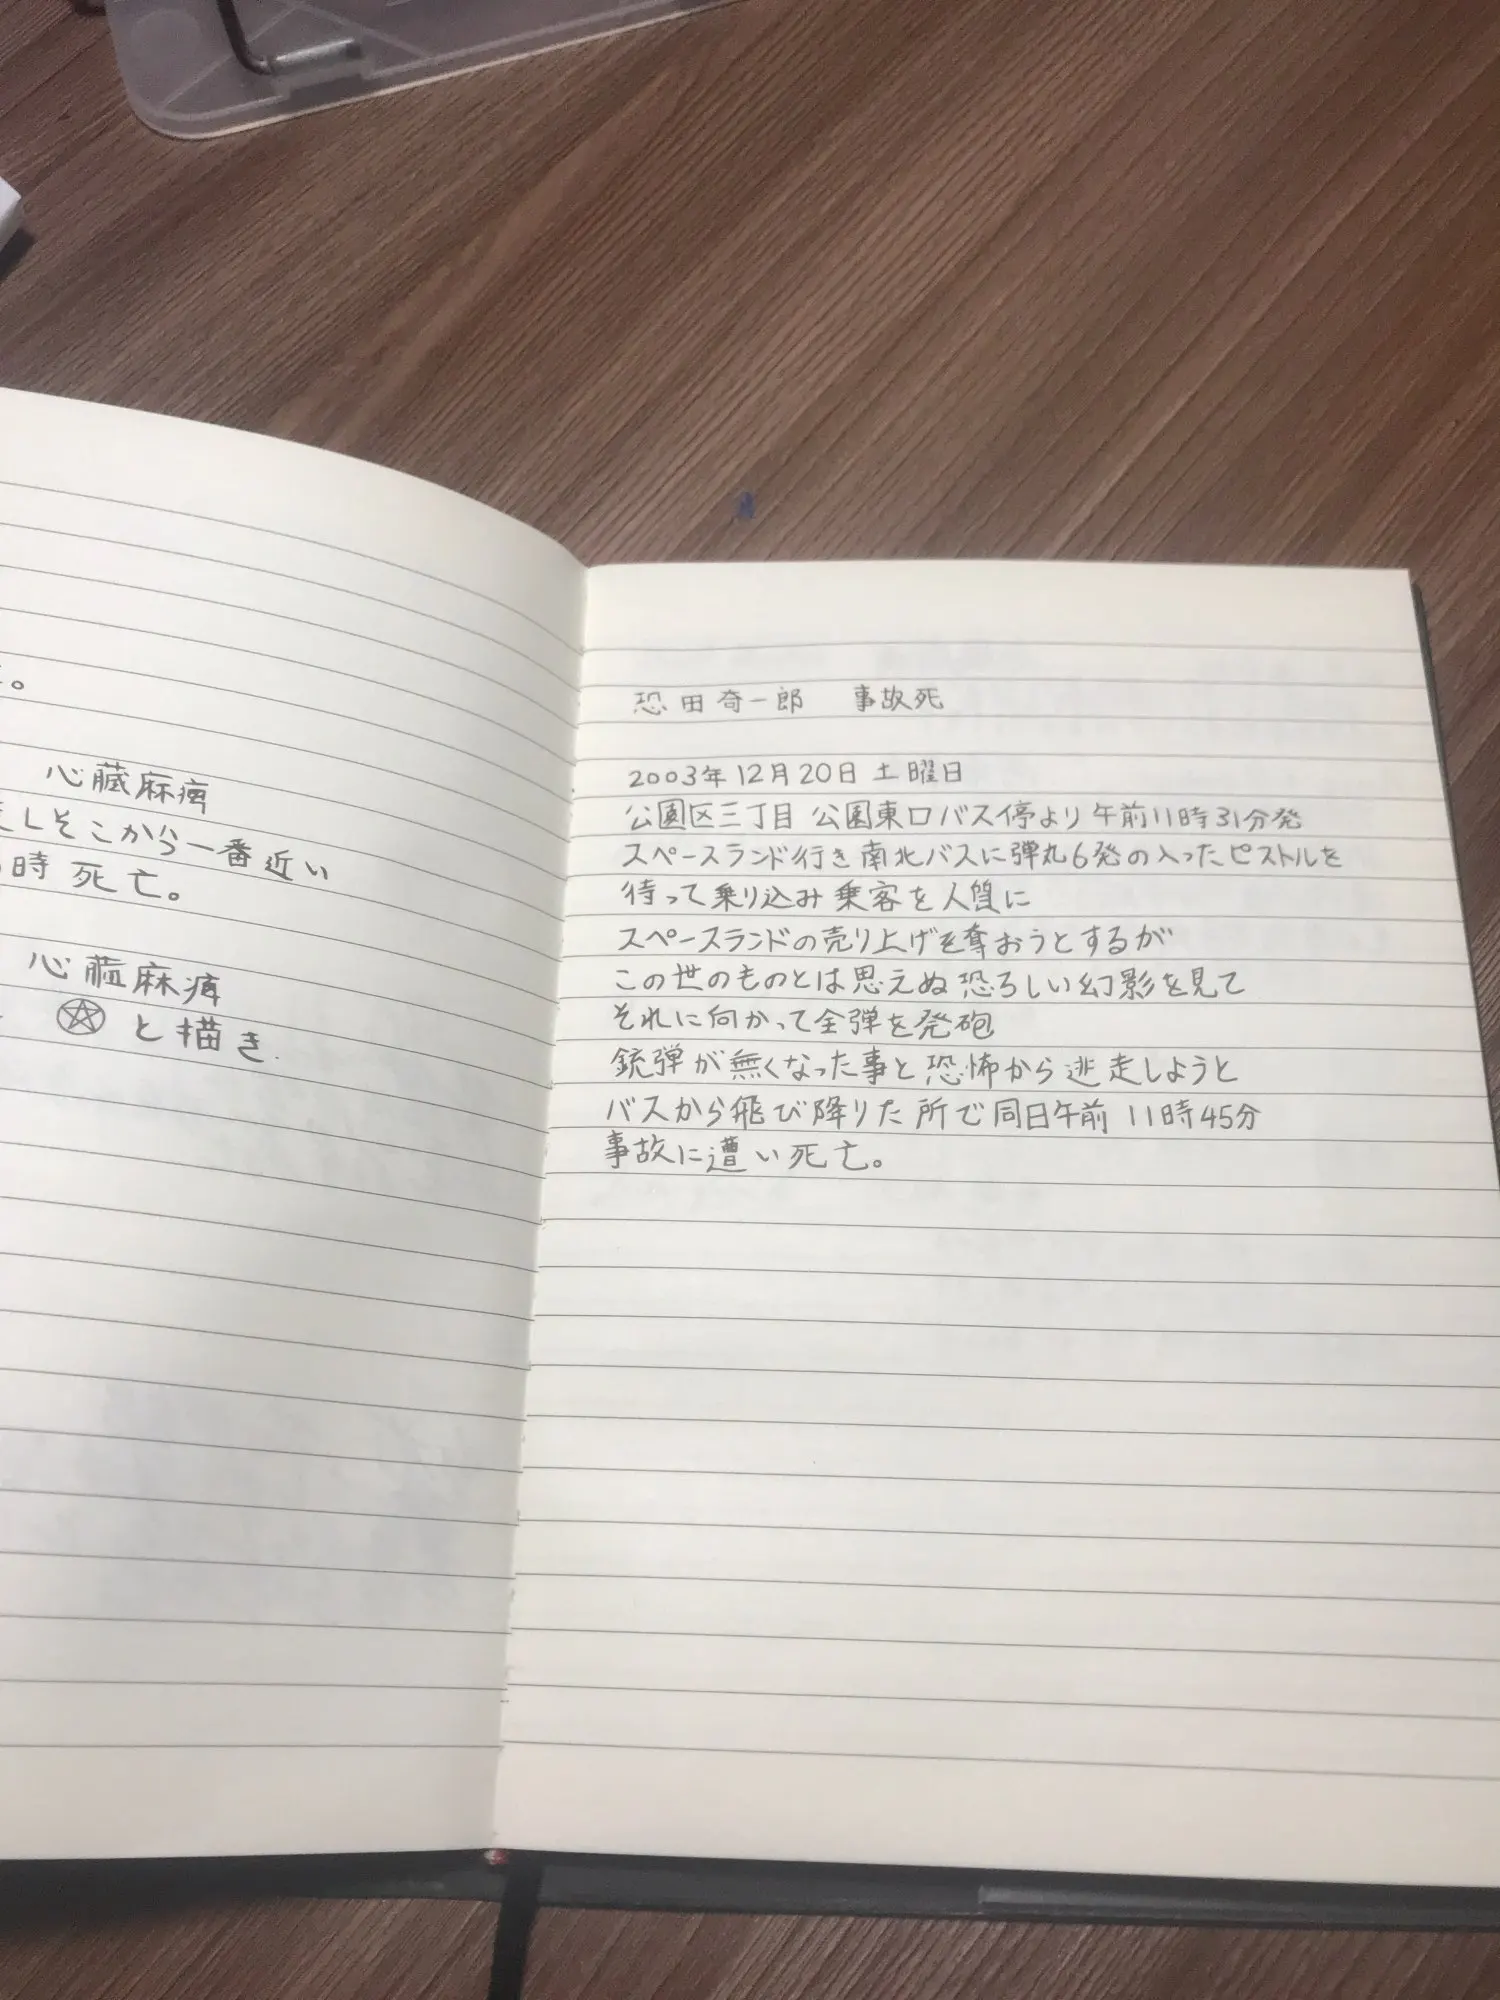 。
心臓麻痺
しそこから一番近い
時 死亡。
心臓麻痺
と描き
恐田奇一郎 事故死
2003年12月20日 土曜日
公園区三丁目 公園東口バス停より 午前11時31分発
スペースランド行き 南北バスに弾丸6発の入ったピストルを
待って乗り込み 乗客を人質に
スペースランドの売り上げを奪おうとするが
この世のものとは思えぬ恐ろしい幻影を見て
それに向かって全弾を発砲
銃弾が無くなった事と恐怖から逃走しようと
バスから飛び降りた所で同日午前 11時45分
事故に遭い死亡。